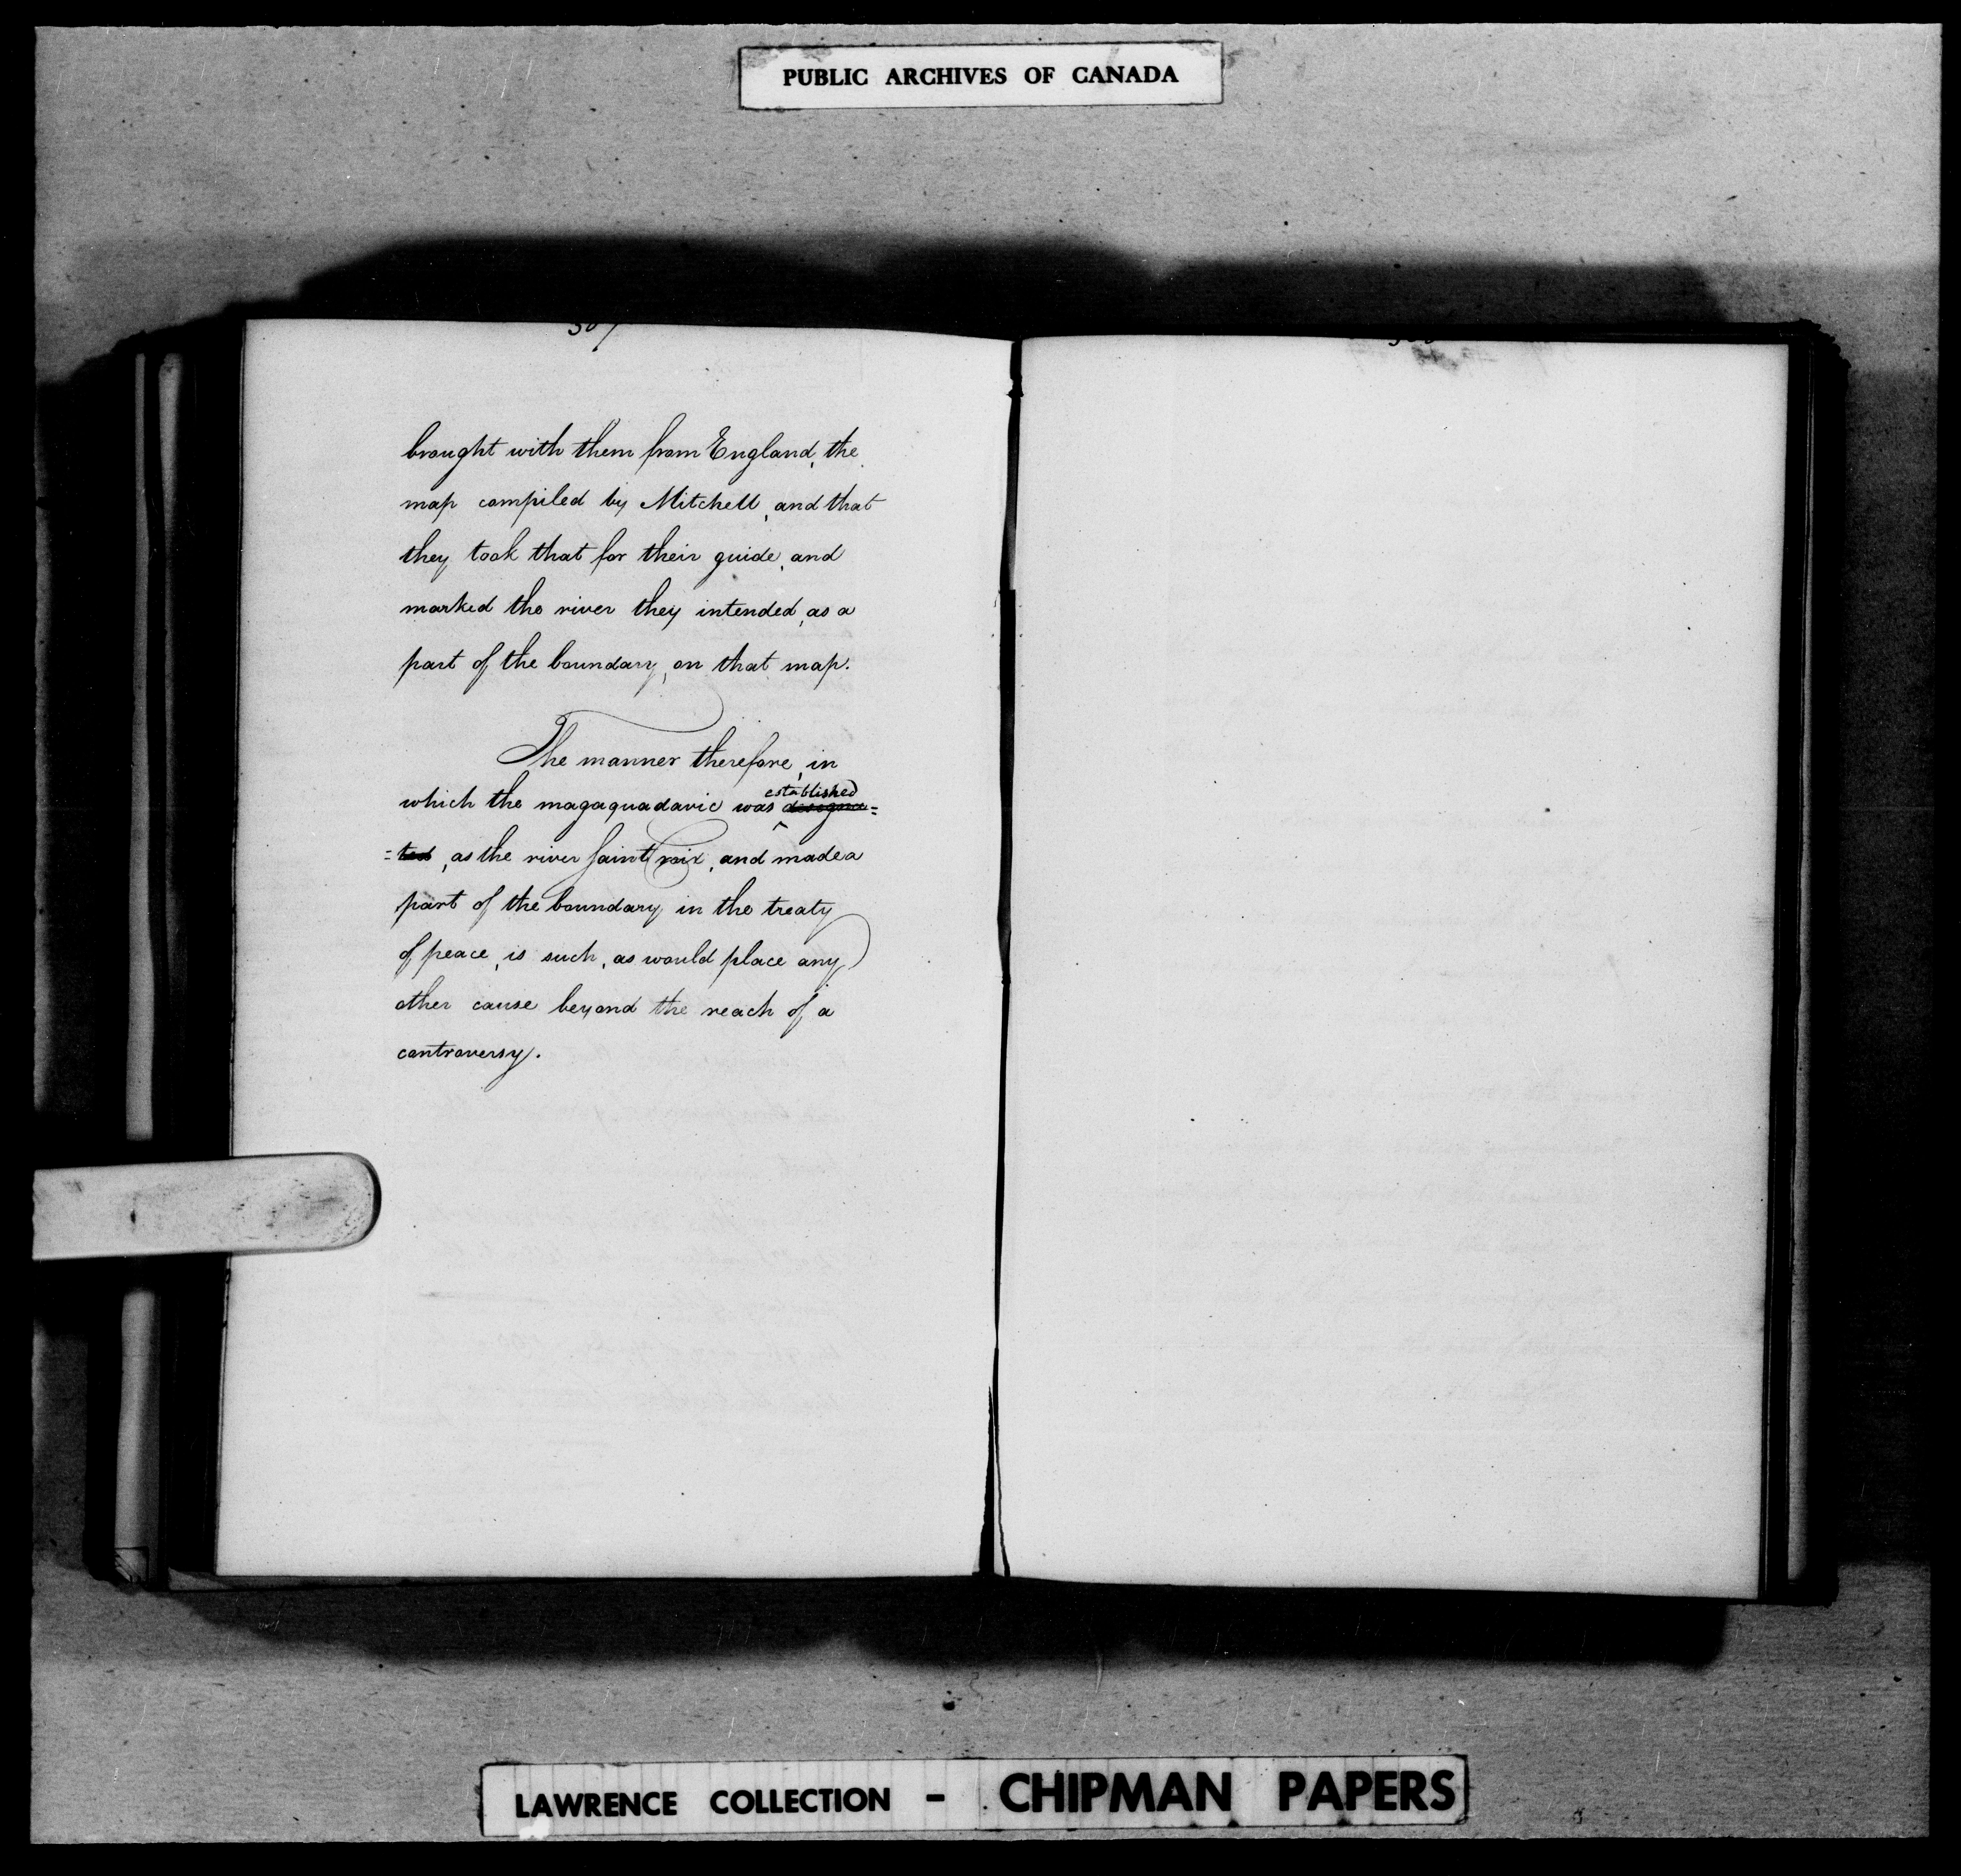 PUBLIC ARCHIVES OF CANADA
brought with them from England, the
map compiled by Mitchell, and that
they took that for their guide, and
marked the river they intended, as a
part of the boundary, on that map.
The manner therefore, in
established
which the magaquadavic was designa=
=ted, as the river Saint Croix, and made a
part of the boundary in the treaty
of peace, is such, as would place any
other cause beyond the reach of a
controversy.
LAWRENCE COLLECTION - CHIPMAN PAPERS